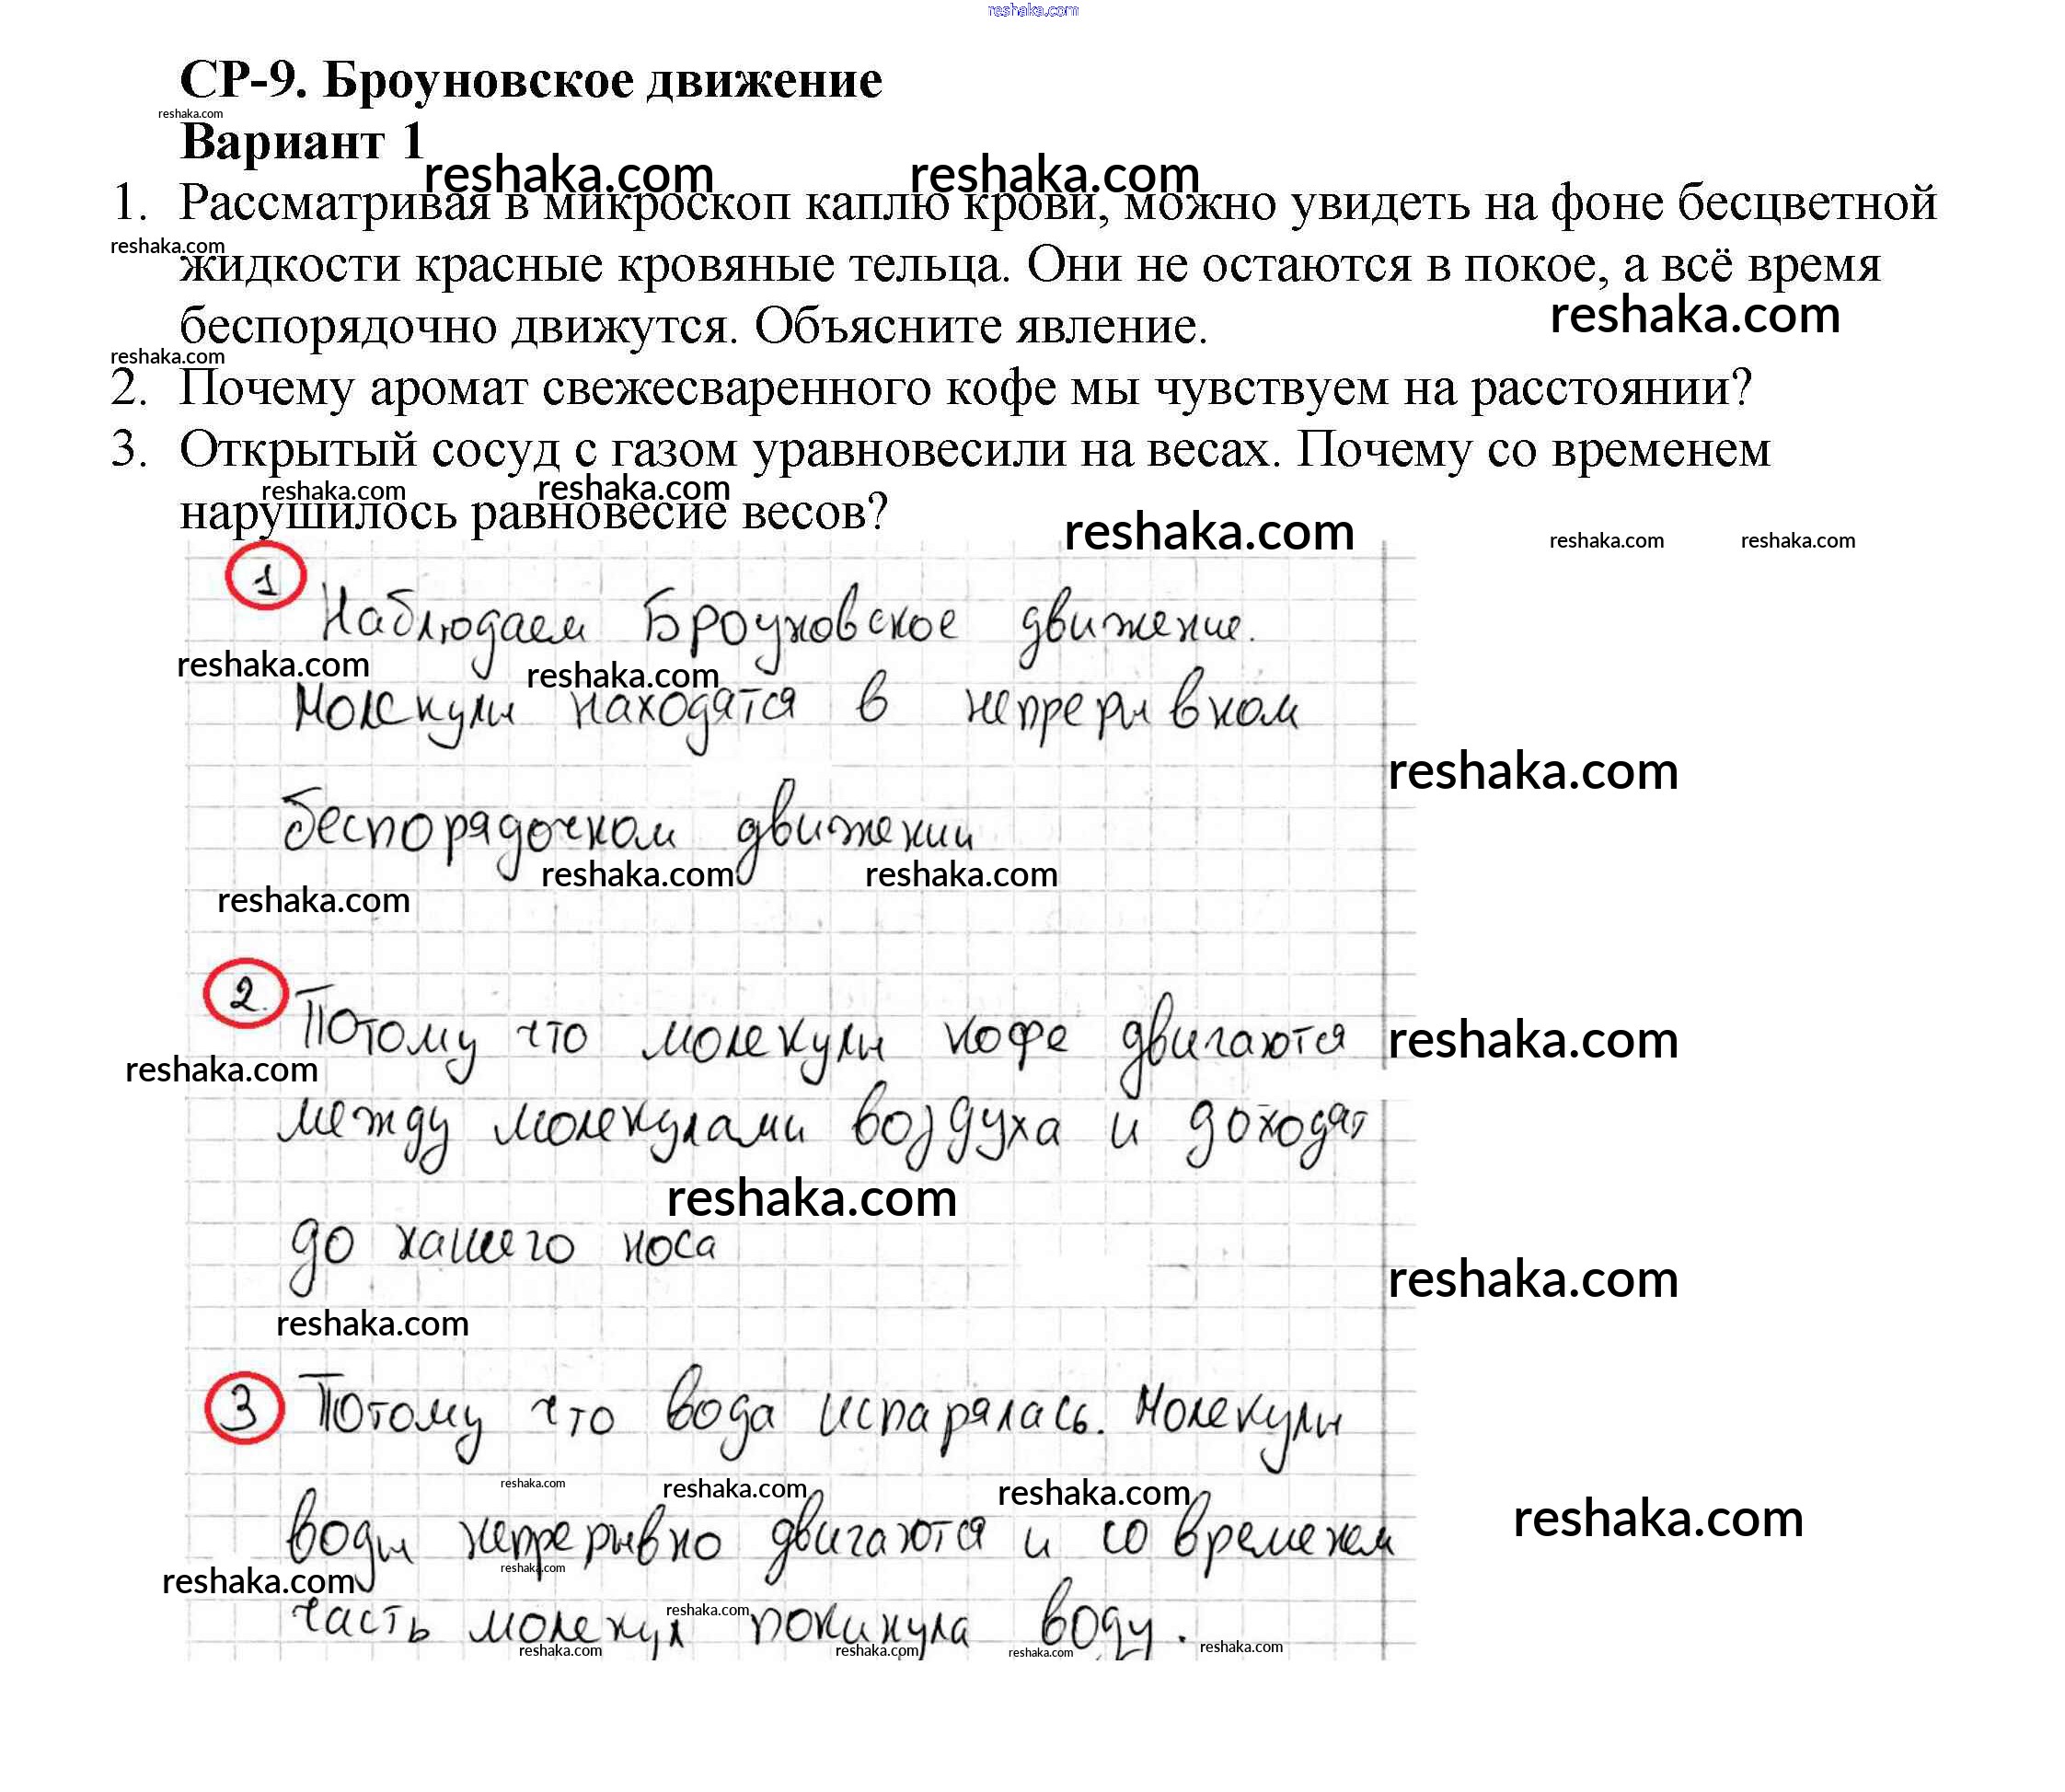 reshaka.com
СР-9. Броуновское движение
reshaka.com
Вариант 1
reshaka.com reshaka.com
1. Рассматривая в микроскоп каплю крови, можно увидеть на фоне бесцветной
reshaka.com
жидкости красные кровяные тельца. Они не остаются в покое, а всё время
reshaka.com
беспорядочно движутся. Объясните явление.
reshaka.com
2. Почему аромат свежесваренного кофе мы чувствуем на расстоянии?
3. Открытый сосуд с газом уравновесили на весах. Почему со временем
reshaka.com reshaka.com
нарушилось равновесие весов?
reshaka.com reshaka.com reshaka.com
1 Наблюдаем Броуновское движение.
reshaka.com reshaka.com
Молекулы находятся в непрерывном
reshaka.com
беспорядочном движении
reshaka.com reshaka.com
reshaka.com
2. Потому что молекулы кофе двигаются
reshaka.com
reshaka.com
между молекулами воздуха и доходят
reshaka.com
до нашего носа
reshaka.com
reshaka.com
3 Потому что вода испарялась. Молекулы
reshaka.com reshaka.com reshaka.com
reshaka.com
воды непрерывно двигаются и со временем
reshaka.com
reshaka.com
reshaka.com
часть молекул покинула воду.
reshaka.com reshaka.com reshaka.com reshaka.com